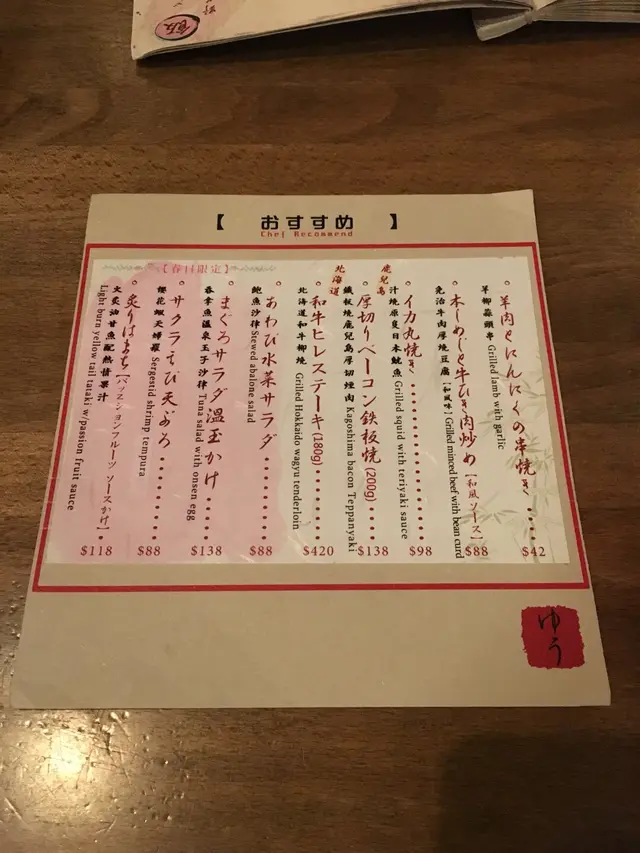 【 おすすめ 】
Chef Recommend
羊肉とにんにくの串焼き $42
羊柳蒜頭串 Grilled lamb with garlic
本しめじと牛ひき肉炒め【和風ソース】 $88
免治牛肉厚燒豆腐【和風味】Grilled minced beef with bean curd
イカ丸焼き $98
汁燒原隻日本魷魚 Grilled squid with teriyaki sauce
鹿兒島
厚切りベーコン鉄板焼(200g) $138
鐵板燒鹿兒島厚切煙肉 Kagoshima bacon Teppanyaki
北海道
和牛ヒレステーキ(180g) $420
北海道和牛柳燒 Grilled Hokkaido wagyu tenderloin
【春日限定】
あわび水菜サラダ $88
鮑魚沙律 Stewed abalone salad
まぐろサラダ温玉かけ $138
吞拿魚溫泉玉子沙律 Tuna salad with onsen egg
サクラえび天ぷら $88
櫻花蝦天婦羅 Sergestid shrimp tempura
炙りはまち【パッションフルーツ ソースかけ】 $118
火炙油甘魚配熱情果汁
Light burn yellow tail tataki w/passion fruit sauce
ゆう